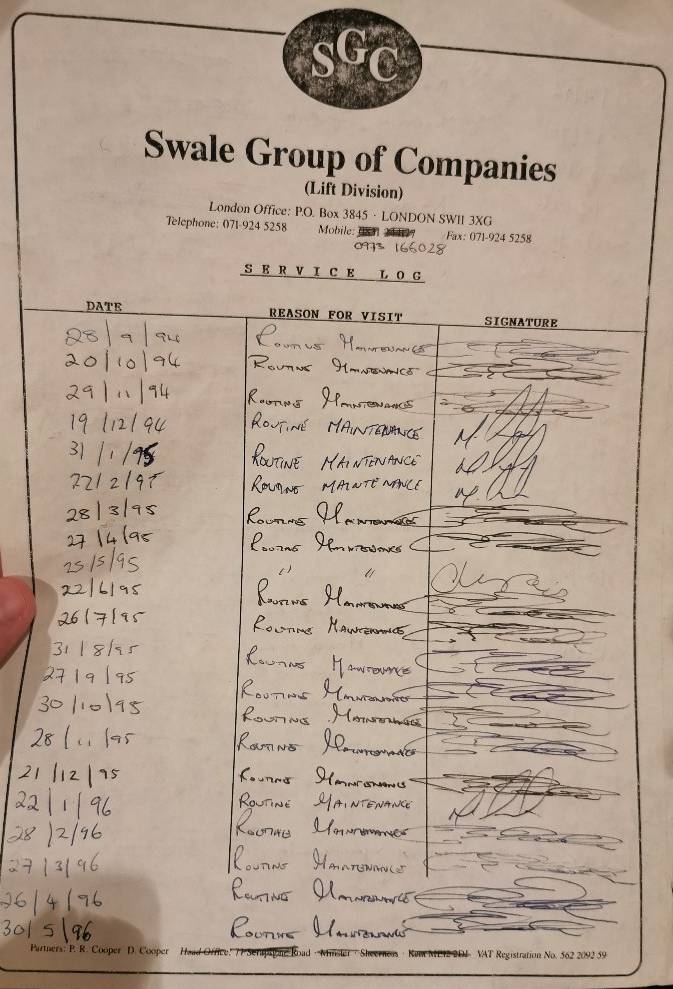 SGC
Swale Group of Companies
(Lift Division)
London Office: P.O. Box 3845 · LONDON SW11 3XG
Telephone: 071-924 5258 Mobile: Fax: 071-924 5258
0973 166028
SERVICE LOG
DATE REASON FOR VISIT SIGNATURE
28/9/94 ROUTINE MAINTENANCE
20/10/94 ROUTINE MAINTENANCE
29/11/94 ROUTINE MAINTENANCE
19/12/94 ROUTINE MAINTENANCE
31/1/95 ROUTINE MAINTENANCE
22/2/95 ROUTINE MAINTENANCE
28/3/95 ROUTINE MAINTENANCE
27/4/95 ROUTINE MAINTENANCE
25/5/95 " "
22/6/95 ROUTINE MAINTENANCE
26/7/95 ROUTINE MAINTENANCE
31/8/95 ROUTINE MAINTENANCE
27/9/95 ROUTINE MAINTENANCE
30/10/95 ROUTINE MAINTENANCE
28/11/95 ROUTINE MAINTENANCE
21/12/95 ROUTINE MAINTENANCE
22/1/96 ROUTINE MAINTENANCE
28/2/96 ROUTINE MAINTENANCE
27/3/96 ROUTINE MAINTENANCE
26/4/96 ROUTINE MAINTENANCE
30/5/96 ROUTINE MAINTENANCE
Partners: P. R. Cooper D. Cooper Head Office: Road · Minster · Sheerness · Kent VAT Registration No. 562 2092 59